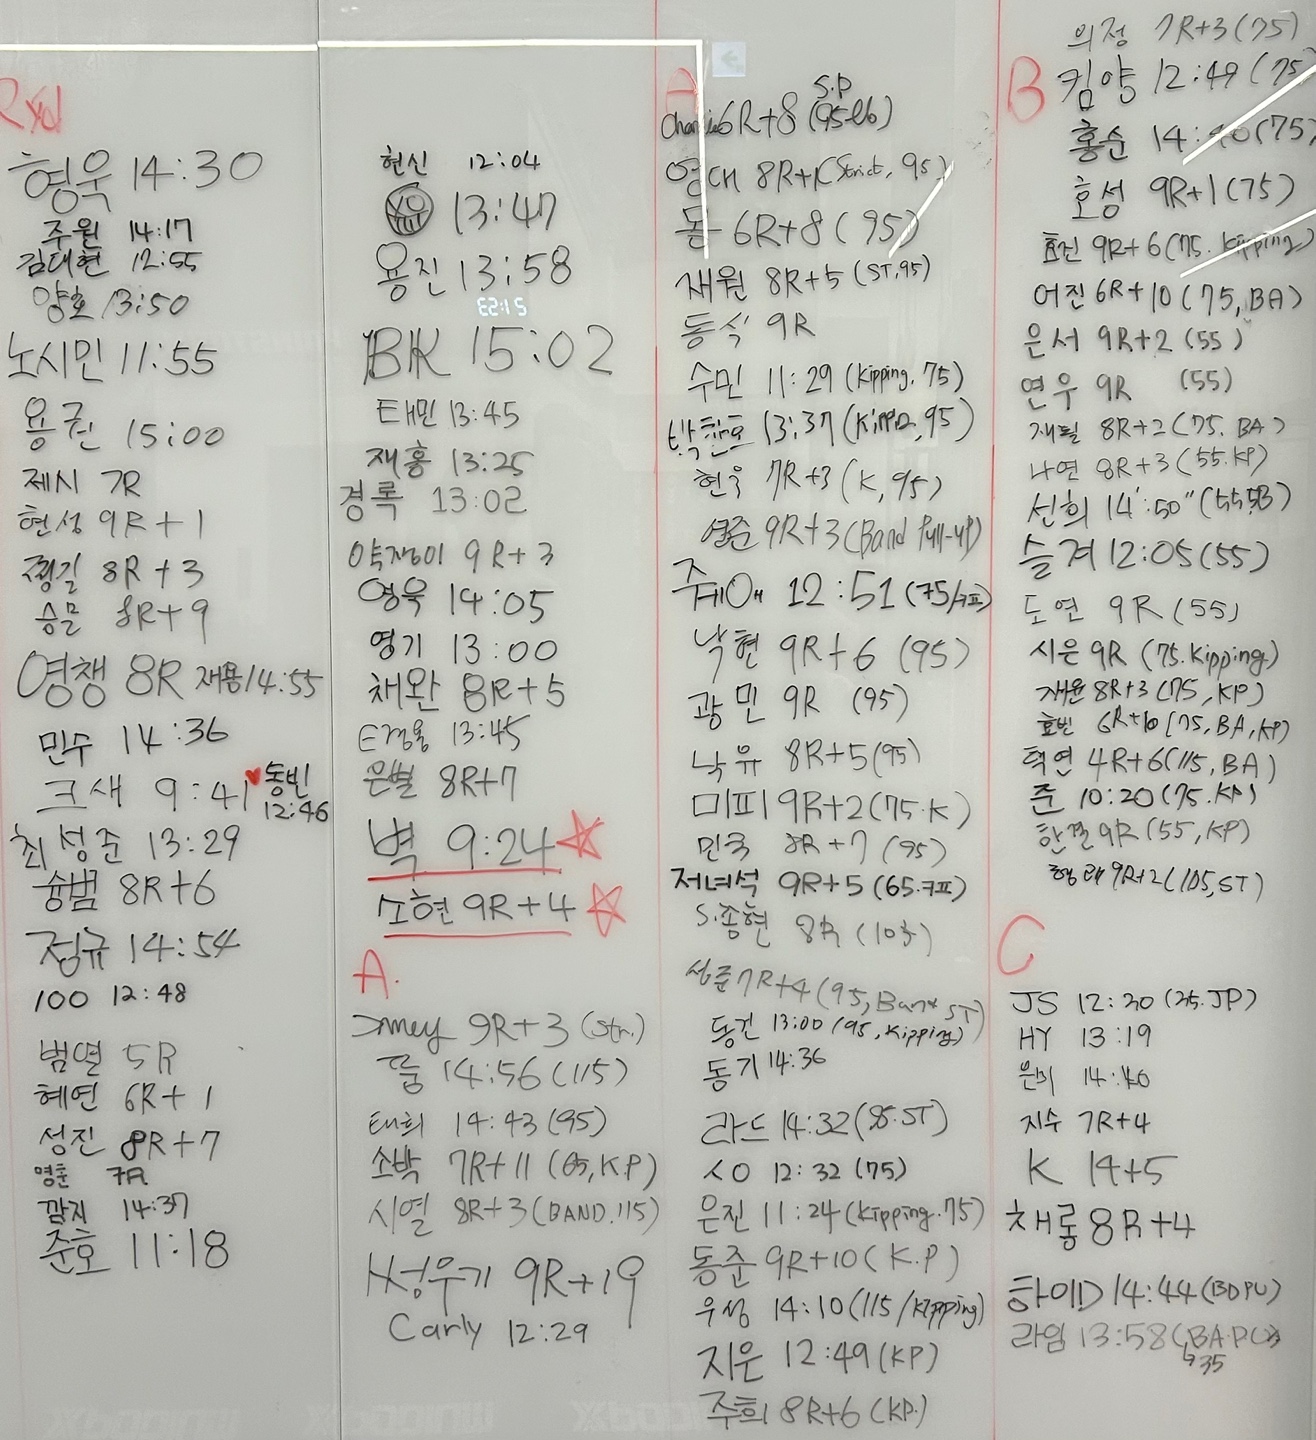 Rxd
형욱 14:30
주원 14:17
김대현 12:55
양호 13:50
노시민 11:55
용권 15:00
제시 7R
현성 9R+1
정길 8R+3
승물 8R+9
영챙 8R 재용 14:55
민수 14:36
크새 9:41 ♥ 동빈 12:46
최성준 13:29
슝범 8R+6
정규 14:54
100 12:48
범연 5R
혜연 6R+1
성진 8R+7
명훈 7R
깜지 14:37
준호 11:18
현신 12:04
13:47
용진 13:58
BK 15:02
태민 13:45
재홍 13:25
경록 13:02
약쟁이 9R+3
영욱 14:05
영기 13:00
채완 8R+5
E정웅 13:45
은별 8R+7
벽 9:24 ☆
소현 9R+4 ☆
A.
9R+3 (Str.)
뚬 14:56 (115)
태희 14:43 (95)
소박 7R+11 (65, K.P)
시열 8R+3 (BAND. 115)
성우기 9R+19
Carly 12:29
A
S.P
Charlie 6R+8 (95lb)
영대 8R+1 (Strict, 95)
돌 6R+8 (95)
재원 8R+5 (ST, 95)
동식 9R
수민 11:29 (Kipping. 75)
박찬호 13:37 (Kipping, 95)
현우 7R+3 (K, 95)
영준 9R+3 (Band Pull-up)
쥬에어 12:51 (75/키핑)
낙현 9R+6 (95)
광민 9R (95)
낙유 8R+5 (95)
미피 9R+2 (75.K)
민국 8R+7 (95)
저녀석 9R+5 (65.키핑)
S.종현 8R
성준 7R+4 (95, Band ST)
동건 13:00 (95, Kipping)
동기 14:36
라드 14:32 (95.ST)
12:32 (75)
은진 11:24 (Kipping. 75)
동준 9R+10 (K.P)
우성 14:10 (115/Kipping)
지은 12:49 (KP)
주희 8R+6 (KP.)
B
의정 7R+3 (75)
킴양 12:49 (75)
홍순 14:40 (75)
호성 9R+1 (75)
효진 9R+6 (75. Kipping)
어진 6R+10 (75, BA)
은서 9R+2 (55)
연우 9R (55)
재필 8R+2 (75. BA)
나연 8R+3 (55. KP)
신희 14':50" (55, B)
슬겨 12:05 (55)
도연 9R (55)
시은 9R (75. Kipping)
재윤 8R+3 (75, KP)
효빈 6R+10 (75, BA, KP)
혁연 4R+6 (115, BA)
준 10:20 (75. KP)
한결 9R (55, KP)
형래 9R+2 (105, ST)
C
JS 12:20 (25. JP)
HY 13:19
은비 14:40
지수 7R+4
K 14+5
채롱 8R+4
하이D 14:44 (BDPU)
라임 13:58 (BA.PU)
↳35